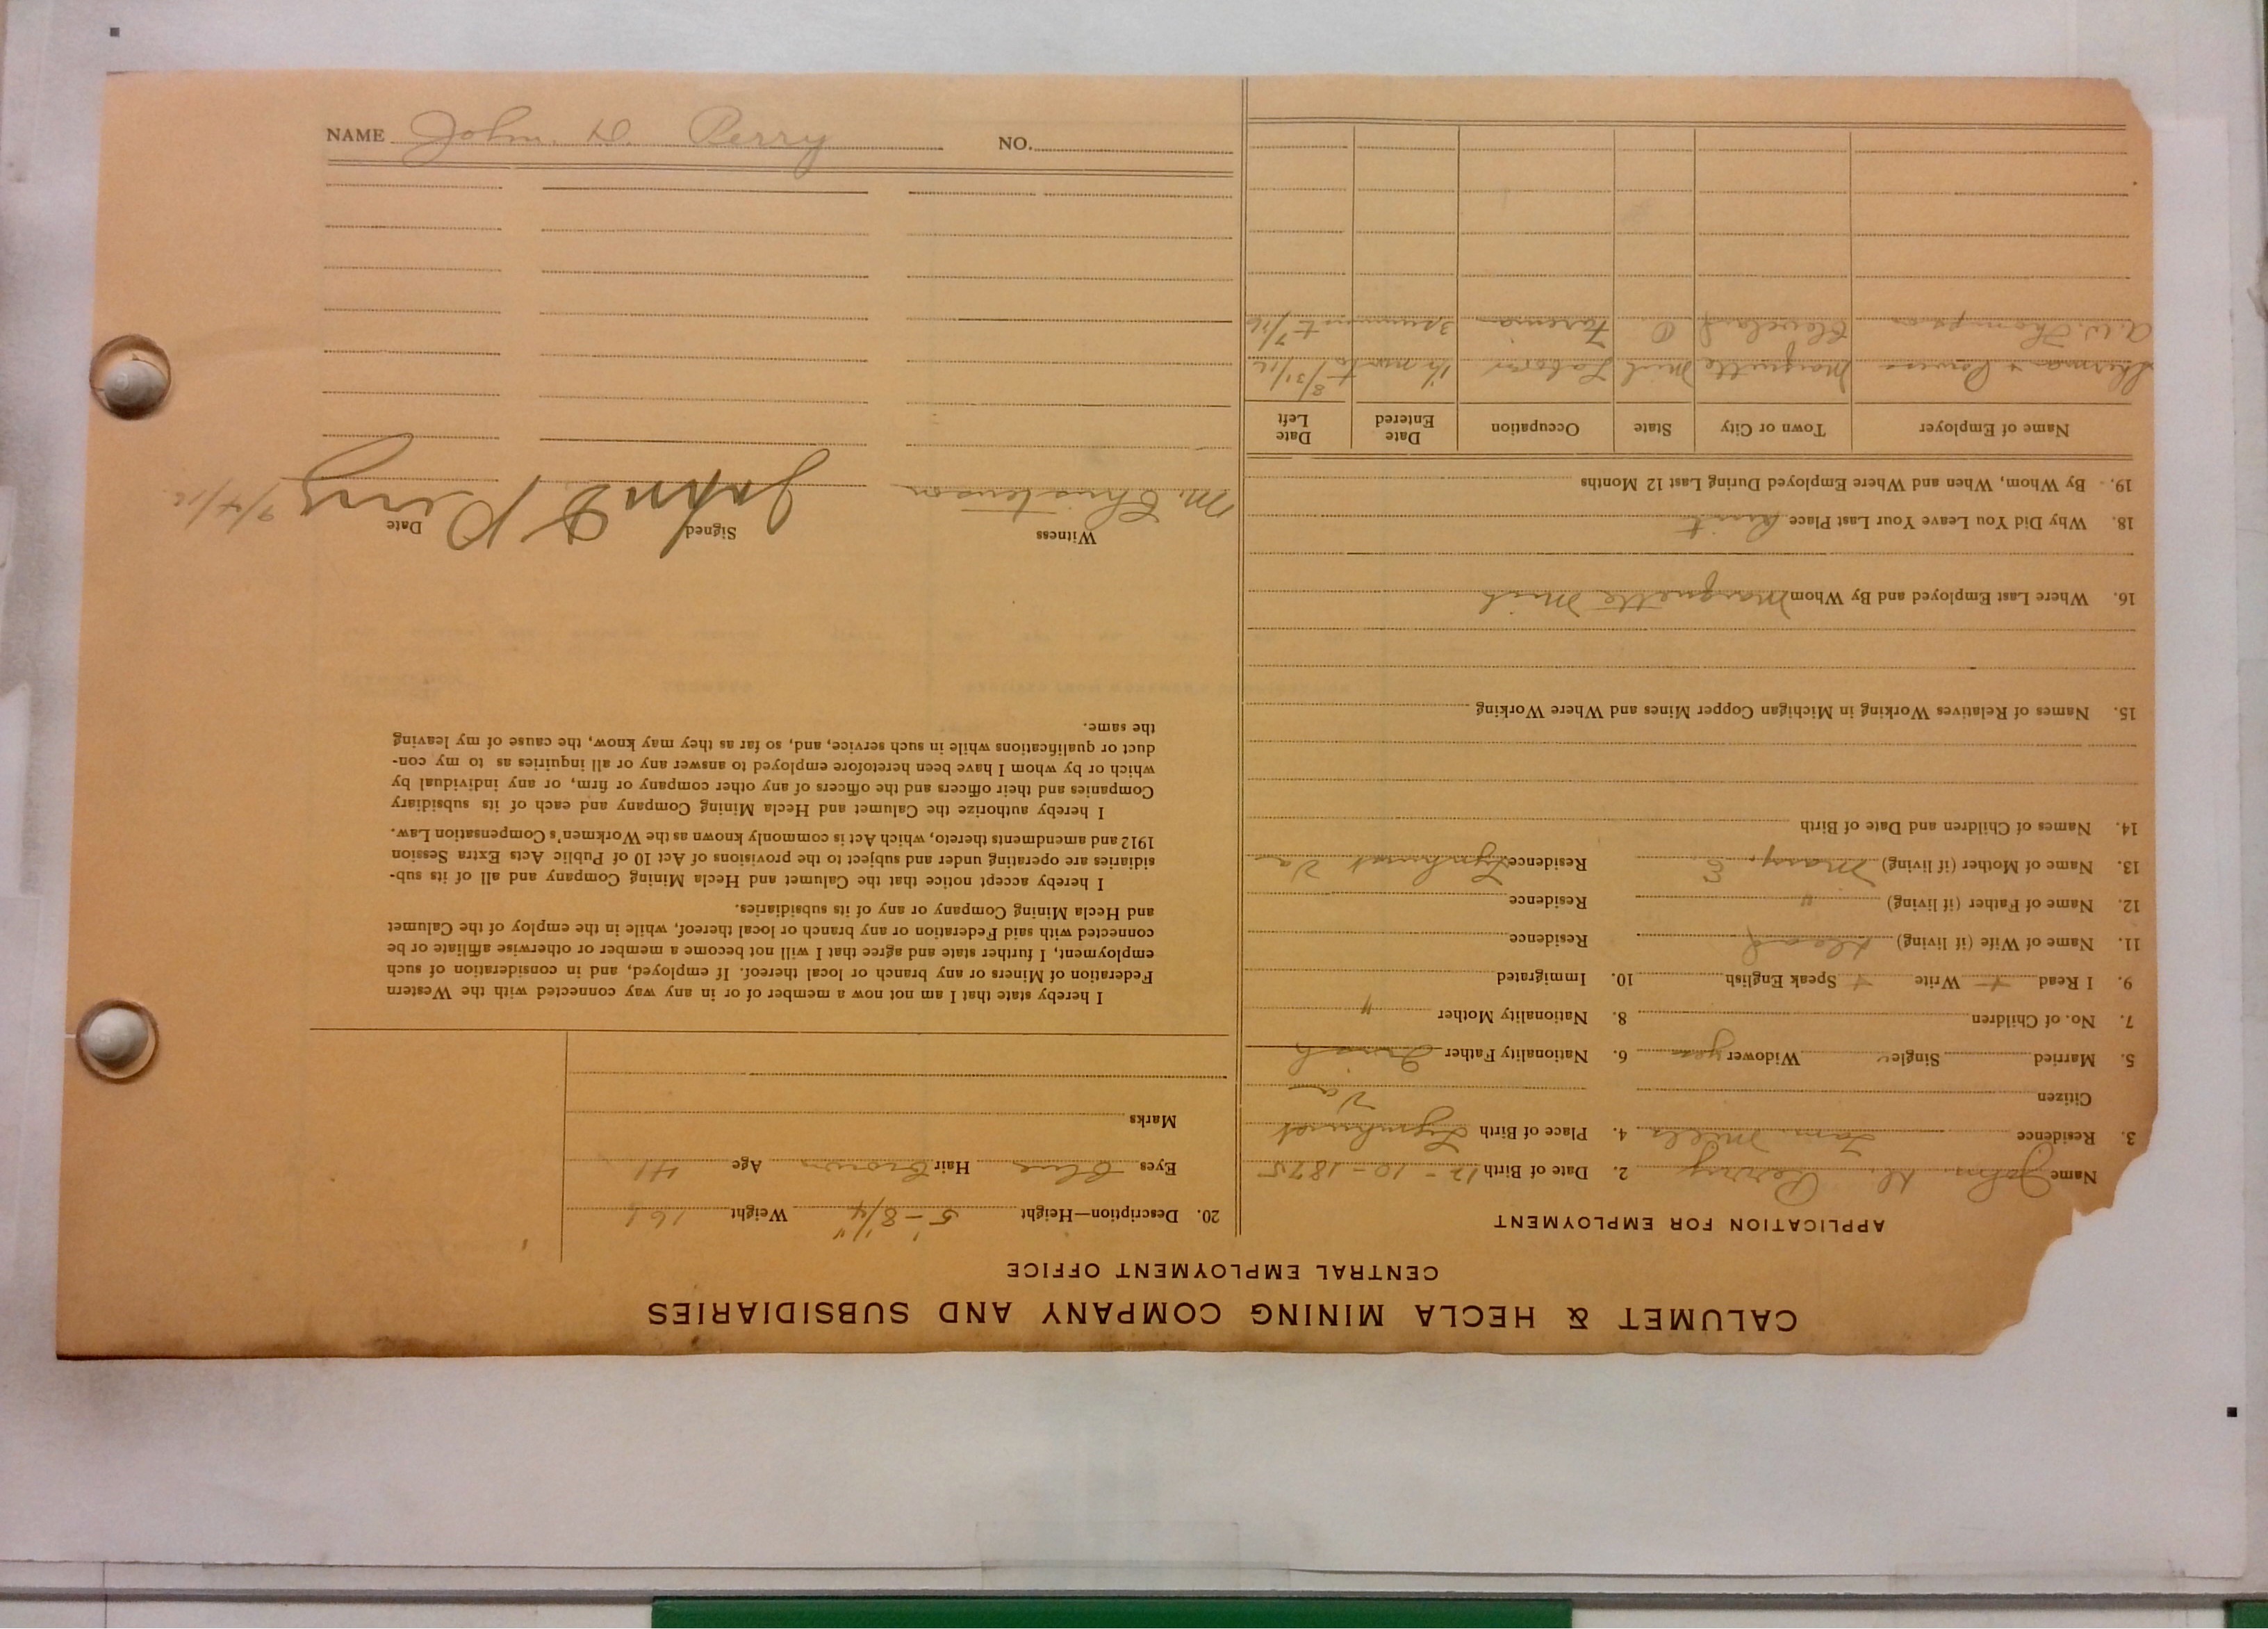 CALUMET & HECLA MINING COMPANY AND SUBSIDIARIES
CENTRAL EMPLOYMENT OFFICE
APPLICATION FOR EMPLOYMENT
Name John. D. Perry 2. Date of Birth 12-10-1875
3. Residence Tam. Mills 4. Place of Birth Lynhurst
Citizen Va
5. Married Single Widower yes 6. Nationality Father Irish
7. No. of Children 8. Nationality Mother "
9. I Read + Write + Speak English 10. Immigrated
11. Name of Wife (if living) dead Residence
12. Name of Father (if living) " Residence
13. Name of Mother (if living) Mary. E. Residence Lynhurst Va
14. Names of Children and Date of Birth
15. Names of Relatives Working in Michigan Copper Mines and Where Working
16. Where Last Employed and By Whom Marquette Mich
18. Why Did You Leave Your Last Place Quit
19. By Whom, When and Where Employed During Last 12 Months
Name of Employer Town or City State Occupation Date Entered Date Left
Sherman + Marquette Mich Laborer 8/31/16
A.W. Thompson Cleveland O 7/16
20. Description—Height 5'-8 1/4" Weight 161
Eyes Blue Hair Brown Age 41
Marks
I hereby state that I am not now a member of or in any way connected with the Western
Federation of Miners or any branch or local thereof. If employed, and in consideration of such
employment, I further state and agree that I will not become a member or otherwise affiliate or be
connected with said Federation or any branch or local thereof, while in the employ of the Calumet
and Hecla Mining Company or any of its subsidiaries.
I hereby accept notice that the Calumet and Hecla Mining Company and all of its sub-
sidiaries are operating under and subject to the provisions of Act 10 of Public Acts Extra Session
1912 and amendments thereto, which Act is commonly known as the Workmen's Compensation Law.
I hereby authorize the Calumet and Hecla Mining Company and each of its subsidiary
Companies and their officers and the officers of any other company or firm, or any individual by
which or by whom I have been heretofore employed to answer any or all inquiries as to my con-
duct or qualifications while in such service, and, so far as they may know, the cause of my leaving
the same.
Witness Signed Date
M. Christenson John D Perry 9/4/16
NAME John. D. Perry NO.